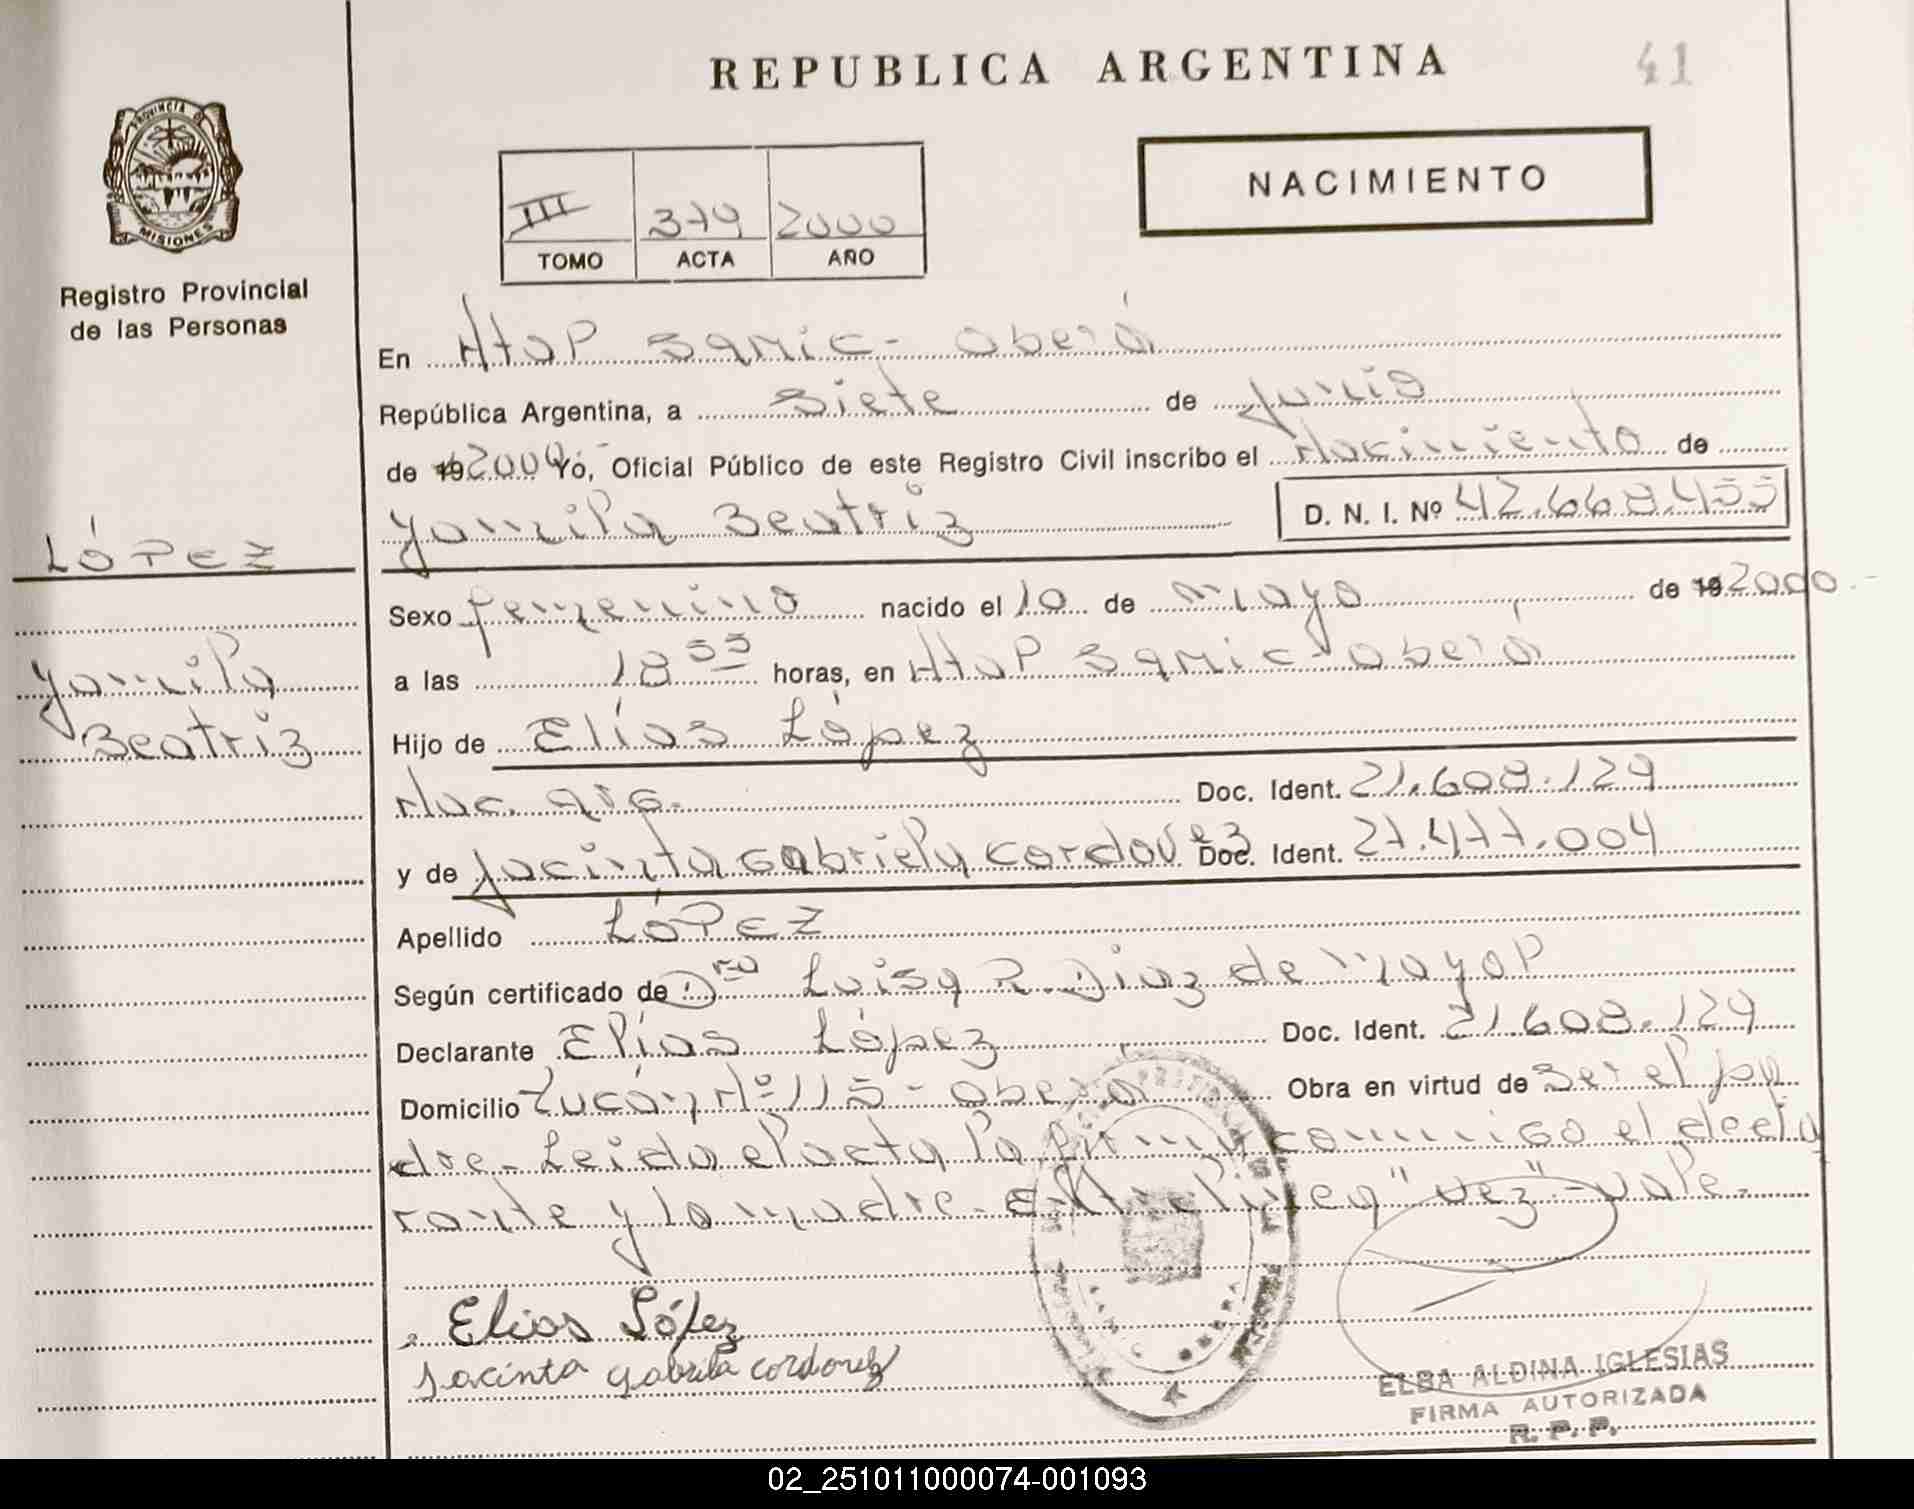 REPUBLICA ARGENTINA
41
PROVINCIA DE
MISIONES
Registro Provincial
de las Personas
NACIMIENTO
III 379 2000
TOMO ACTA AÑO
En Htal Samic - Oberá
República Argentina, a siete de Junio
de 19 2000 Yo, Oficial Público de este Registro Civil inscribo el Nacimiento de
Yamila Beatriz D. N. I. Nº 42.668.455
LÓPEZ
Yamila
Beatriz
Sexo femenino nacido el 10 de mayo de 19 2000.-
a las 18 55 horas, en Htal Samic - Oberá
Hijo de Elías López
Nac. arg. Doc. Ident. 21.608.129
y de Jacinta Gabriela Cordovez Doc. Ident. 27.477.004
Apellido LÓPEZ
Según certificado de Dra Luisa R. Diaz de Mayol
Declarante Elías López Doc. Ident. 21.608.129
Domicilio Nº 115 - Oberá Obra en virtud de ser el pa
dre - Leida el acta la firma conmigo el decla
rante y la madre. Entrelinea "vez" - vale.
Elias López
Jacinta gabriela cordovez
ELBA ALDINA IGLESIAS
FIRMA AUTORIZADA
R. P. P.
02_251011000074-001093